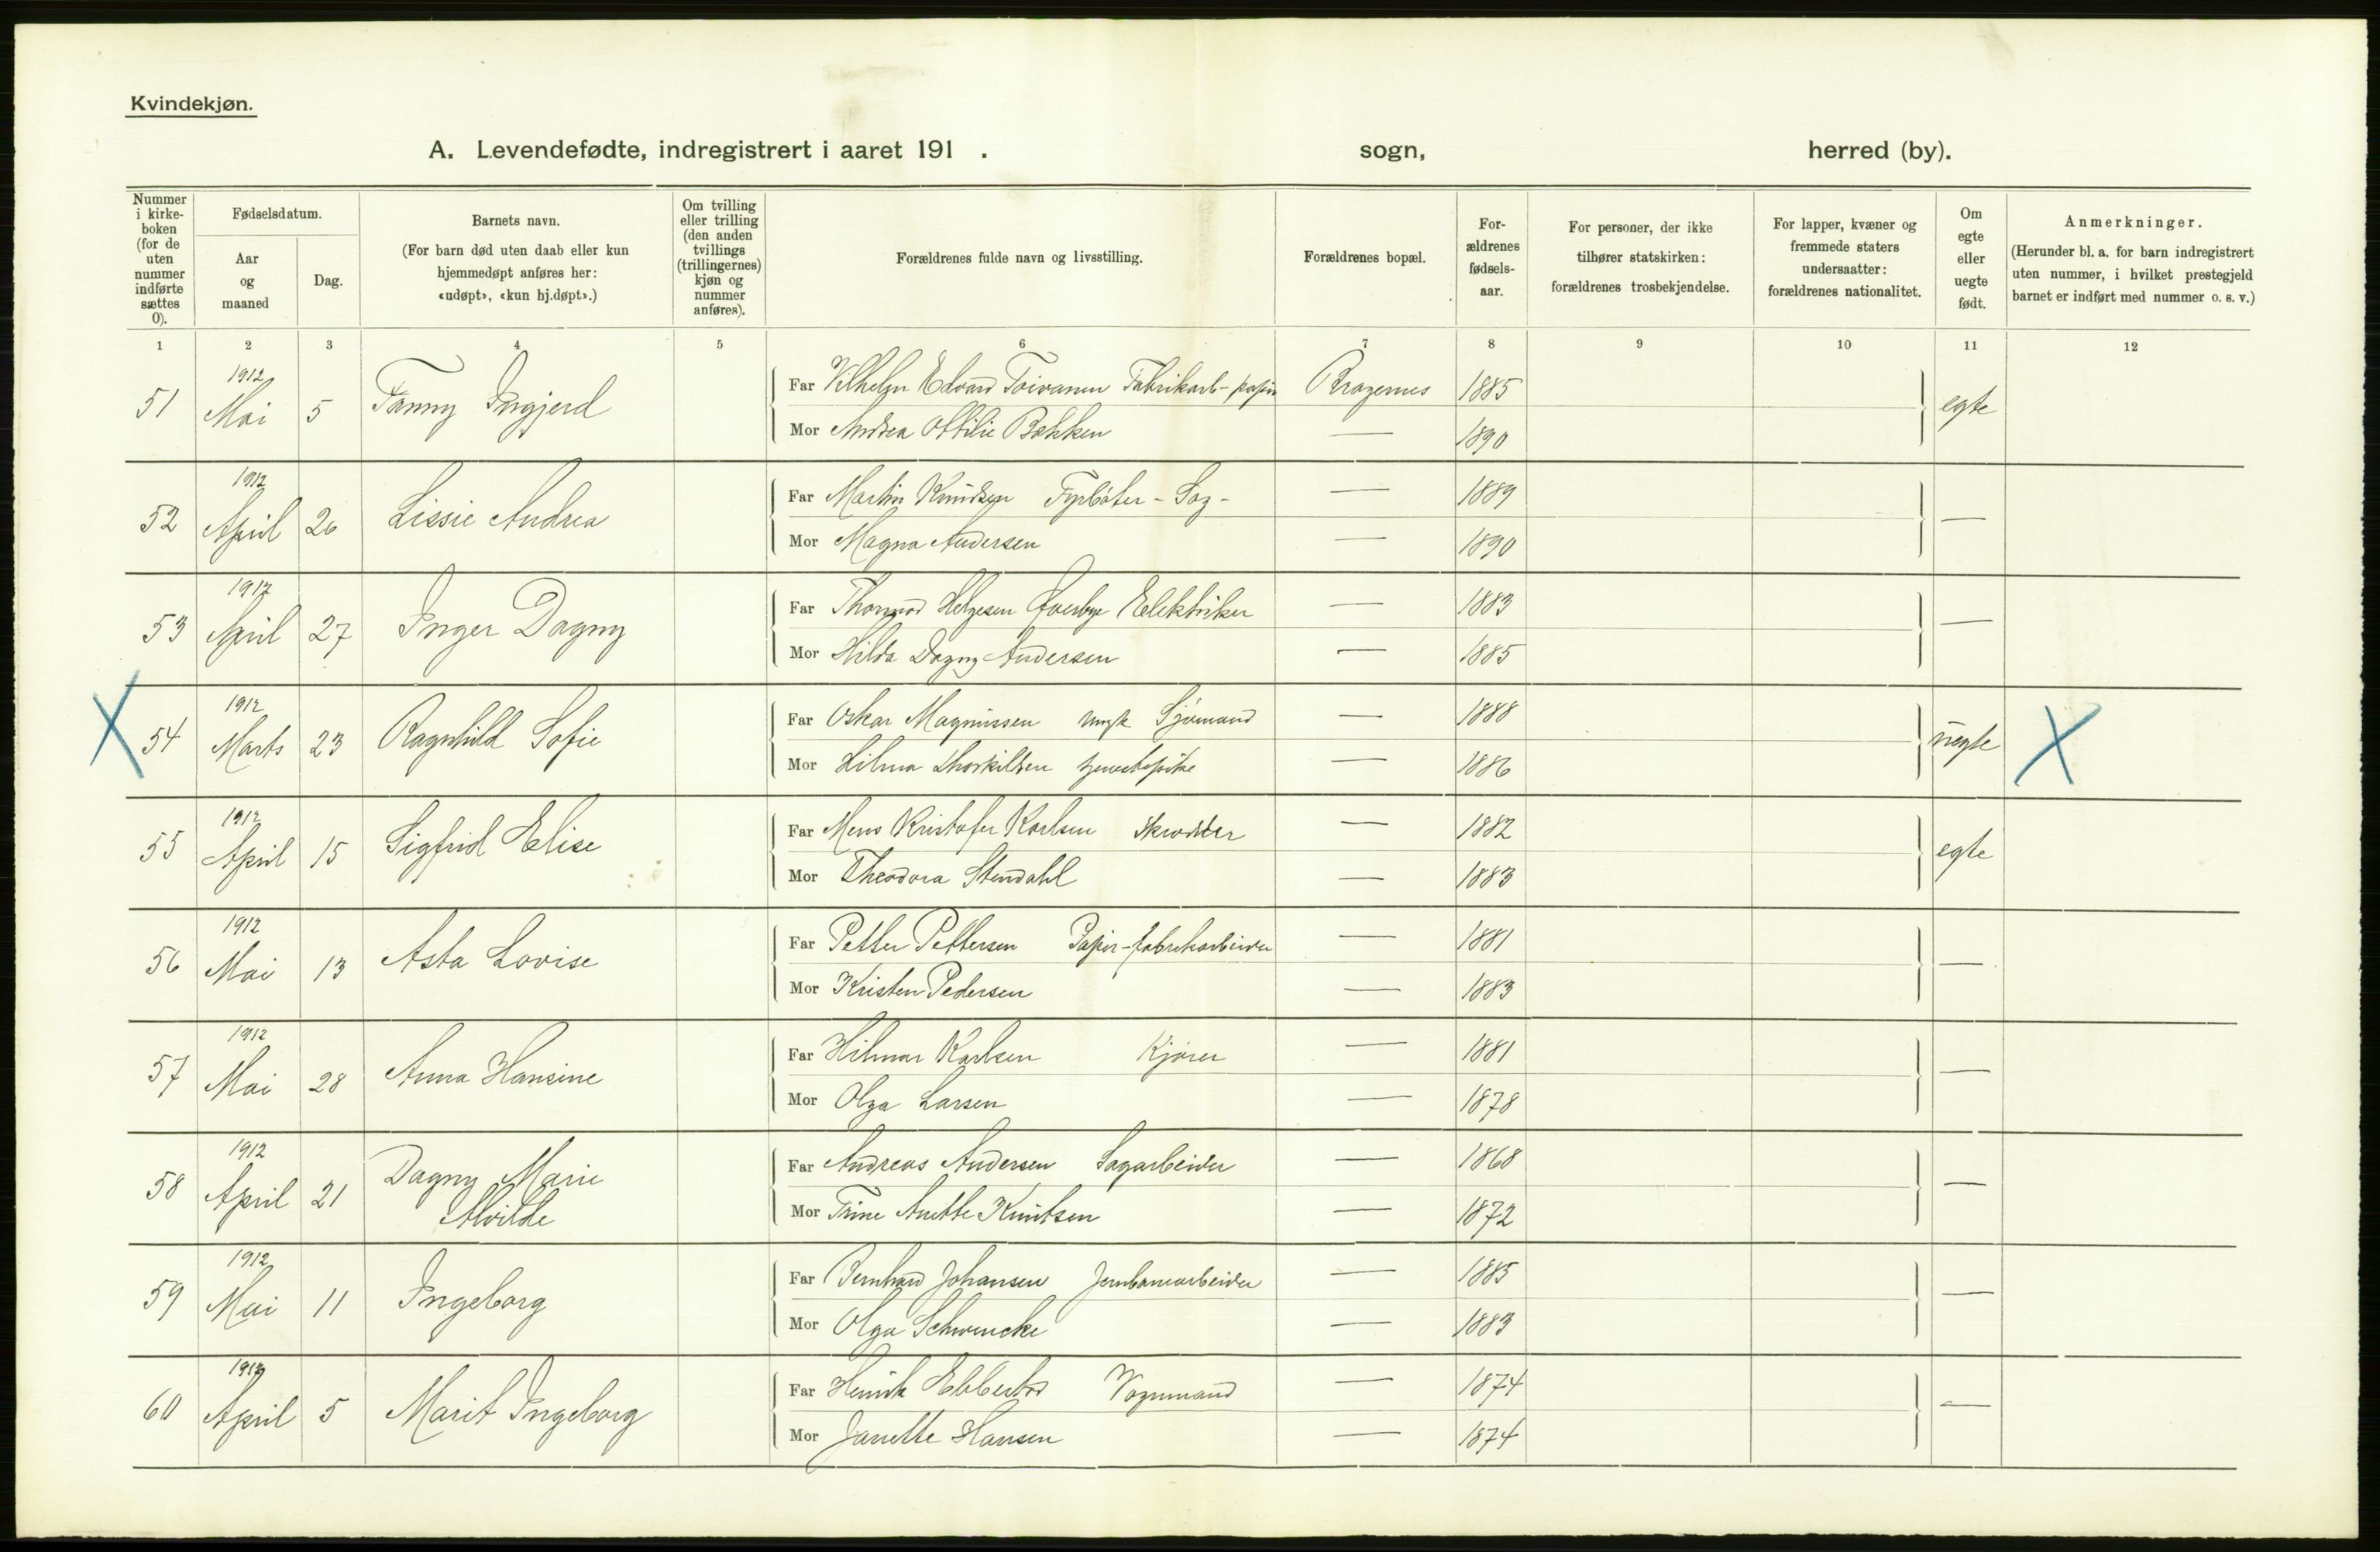 Kvindekjøn.
A. Levendefødte, indregistrert i aaret 191 . sogn, herred (by).
Nummer i kirke-boken (for de uten nummer indførte sættes 0).
Fødselsdatum.
Aar og maaned
Dag.
Barnets navn.
(For barn død uten daab eller kun hjemmedøpt anføres her: «udøpt», «kun hj.døpt».)
Om tvilling eller trilling (den anden tvillings (trillingernes) kjøn og nummer anføres).
Forældrenes fulde navn og livsstilling.
Forældrenes bopæl.
For-ældrenes fødsels-aar.
For personer, der ikke tilhører statskirken: forældrenes trosbekjendelse.
For lapper, kvæner og fremmede staters undersaatter: forældrenes nationalitet.
Om egte eller uegte født.
Anmerkninger.
(Herunder bl. a. for barn indregistrert uten nummer, i hvilket prestegjeld barnet er indført med nummer o. s. v.)
1 2 3 4 5 6 7 8 9 10 11 12
51 1912 Mai 5 Fanny Ingjerd
Far Vilhelm Edvard Toivanen Fabrikarb-papir Bragernes 1885 egte
Mor Andrea Ottilie Bakken — 1890
52 1912 April 26 Lissie Andrea
Far Martin Knudsen Fyrbøter - Sag- — 1889 —
Mor Magna Andersen — 1890
53 1912 April 27 Inger Dagny
Far Helgesen Elektriker — 1883 —
Mor Hilda Dagny Andersen — 1885
X 54 1912 Marts 23 Ragnhild Sofie
Far Oskar Magnussen ungk Sjømand — 1888 uegte X
Mor Hilma Thorkildsen tjenestepike — 1886
55 1912 April 15 Sigfrid Elise
Far Mens Kristofer Karlsen Skrædder — 1882 egte
Mor Theodora Stendahl — 1883
56 1912 Mai 13 Asta Lovise
Far Petter Pettersen Papir-fabrikarbeider — 1881 —
Mor Kristen Pedersen — 1883
57 1912 Mai 28 Anna Hansine
Far Hilmar Karlsen Kjører — 1881 —
Mor Olga Larsen — 1878
58 1912 April 21 Dagny Marie Alvilde
Far Andreas Andersen Sagarbeider — 1868 —
Mor Trine Anette Knutsen — 1872
59 1912 Mai 11 Ingeborg
Far Bernhard Johansen Jernbanearbeider — 1885 —
Mor Olga Schwencke — 1883
60 1912 April 5 Marit Ingeborg
Far Henrik Ebbestad Vognmand — 1874 —
Mor Janette Hansen — 1874